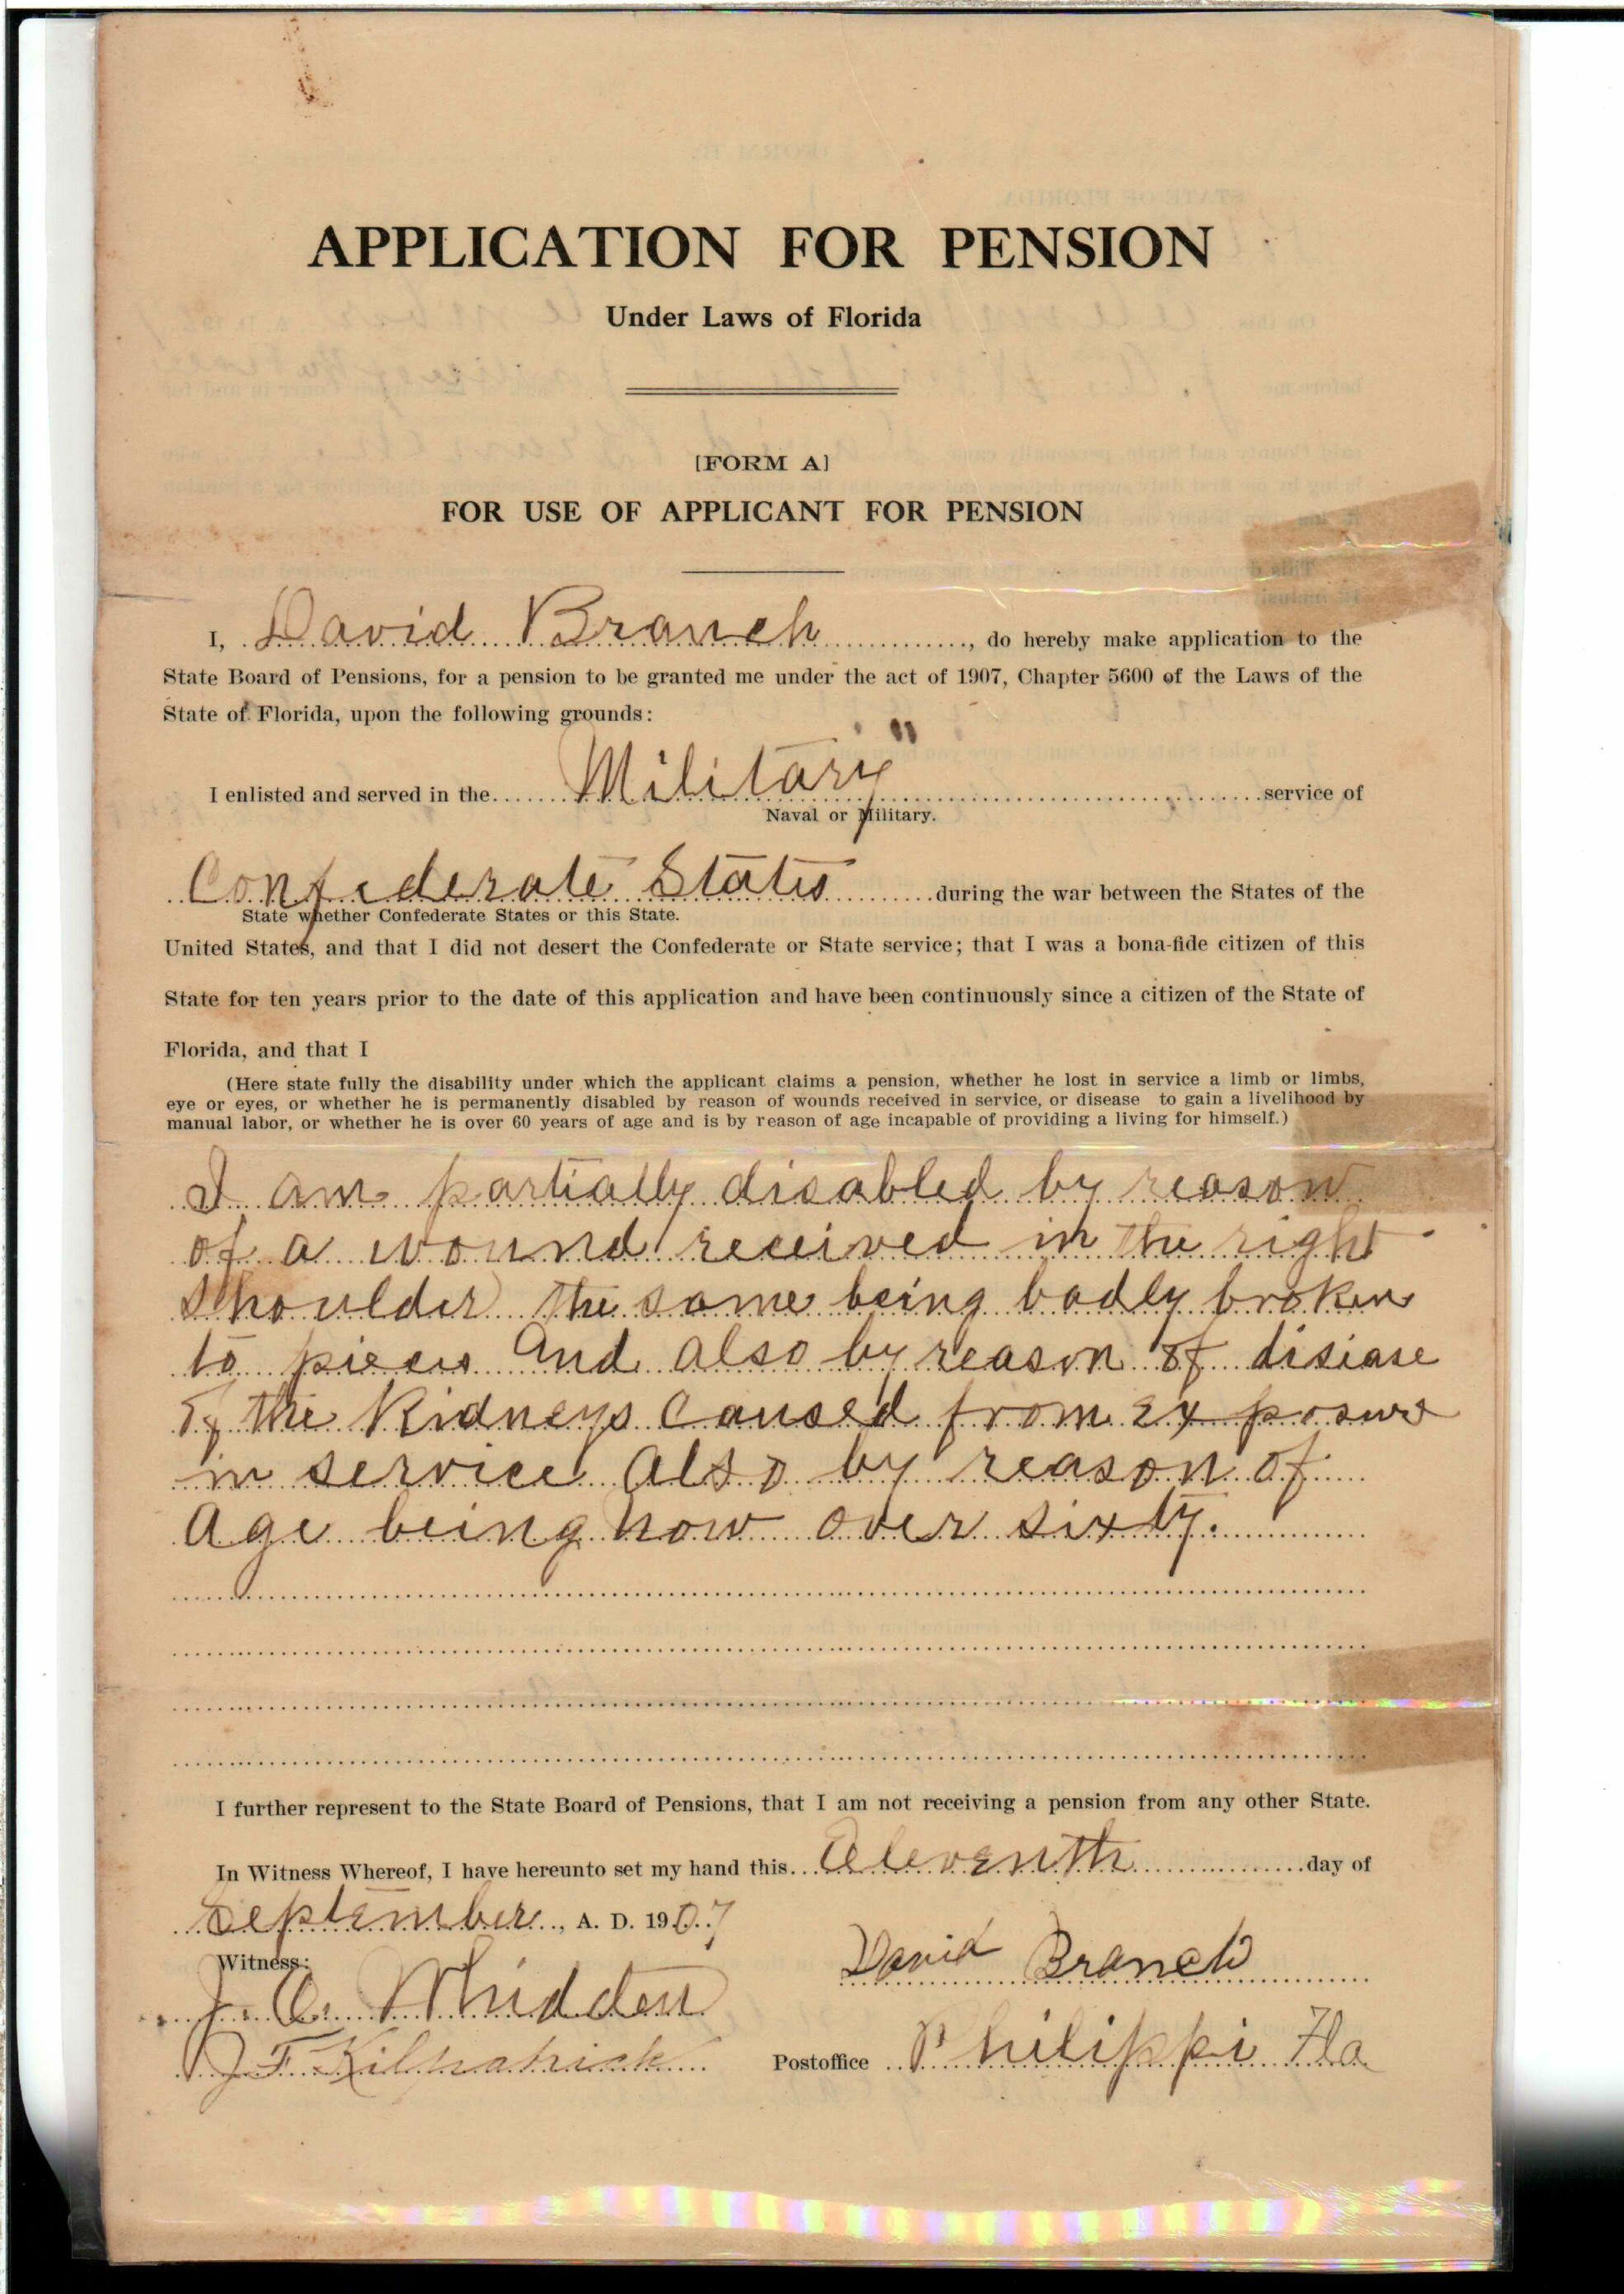 APPLICATION FOR PENSION
Under Laws of Florida
[FORM A]
FOR USE OF APPLICANT FOR PENSION
I, David Branch, do hereby make application to the
State Board of Pensions, for a pension to be granted me under the act of 1907, Chapter 5600 of the Laws of the
State of Florida, upon the following grounds:
I enlisted and served in the Military service of
Naval or Military.
Confederate States during the war between the States of the
State whether Confederate States or this State.
United States, and that I did not desert the Confederate or State service; that I was a bona-fide citizen of this
State for ten years prior to the date of this application and have been continuously since a citizen of the State of
Florida, and that I
(Here state fully the disability under which the applicant claims a pension, whether he lost in service a limb or limbs,
eye or eyes, or whether he is permanently disabled by reason of wounds received in service, or disease to gain a livelihood by
manual labor, or whether he is over 60 years of age and is by reason of age incapable of providing a living for himself.)
I am partially disabled by reason
of a wound received in the right
shoulder the same being badly broken
to pieces And also by reason of disiase
of the Kidneys Caused from exposure
in service Also by reason of
Age being now over sixty.
I further represent to the State Board of Pensions, that I am not receiving a pension from any other State.
In Witness Whereof, I have hereunto set my hand this Eleventh day of
September, A. D. 1907
Witness:
David Branch
J. C. Whidden
J F Kilpatrick
Postoffice Philippi Fla